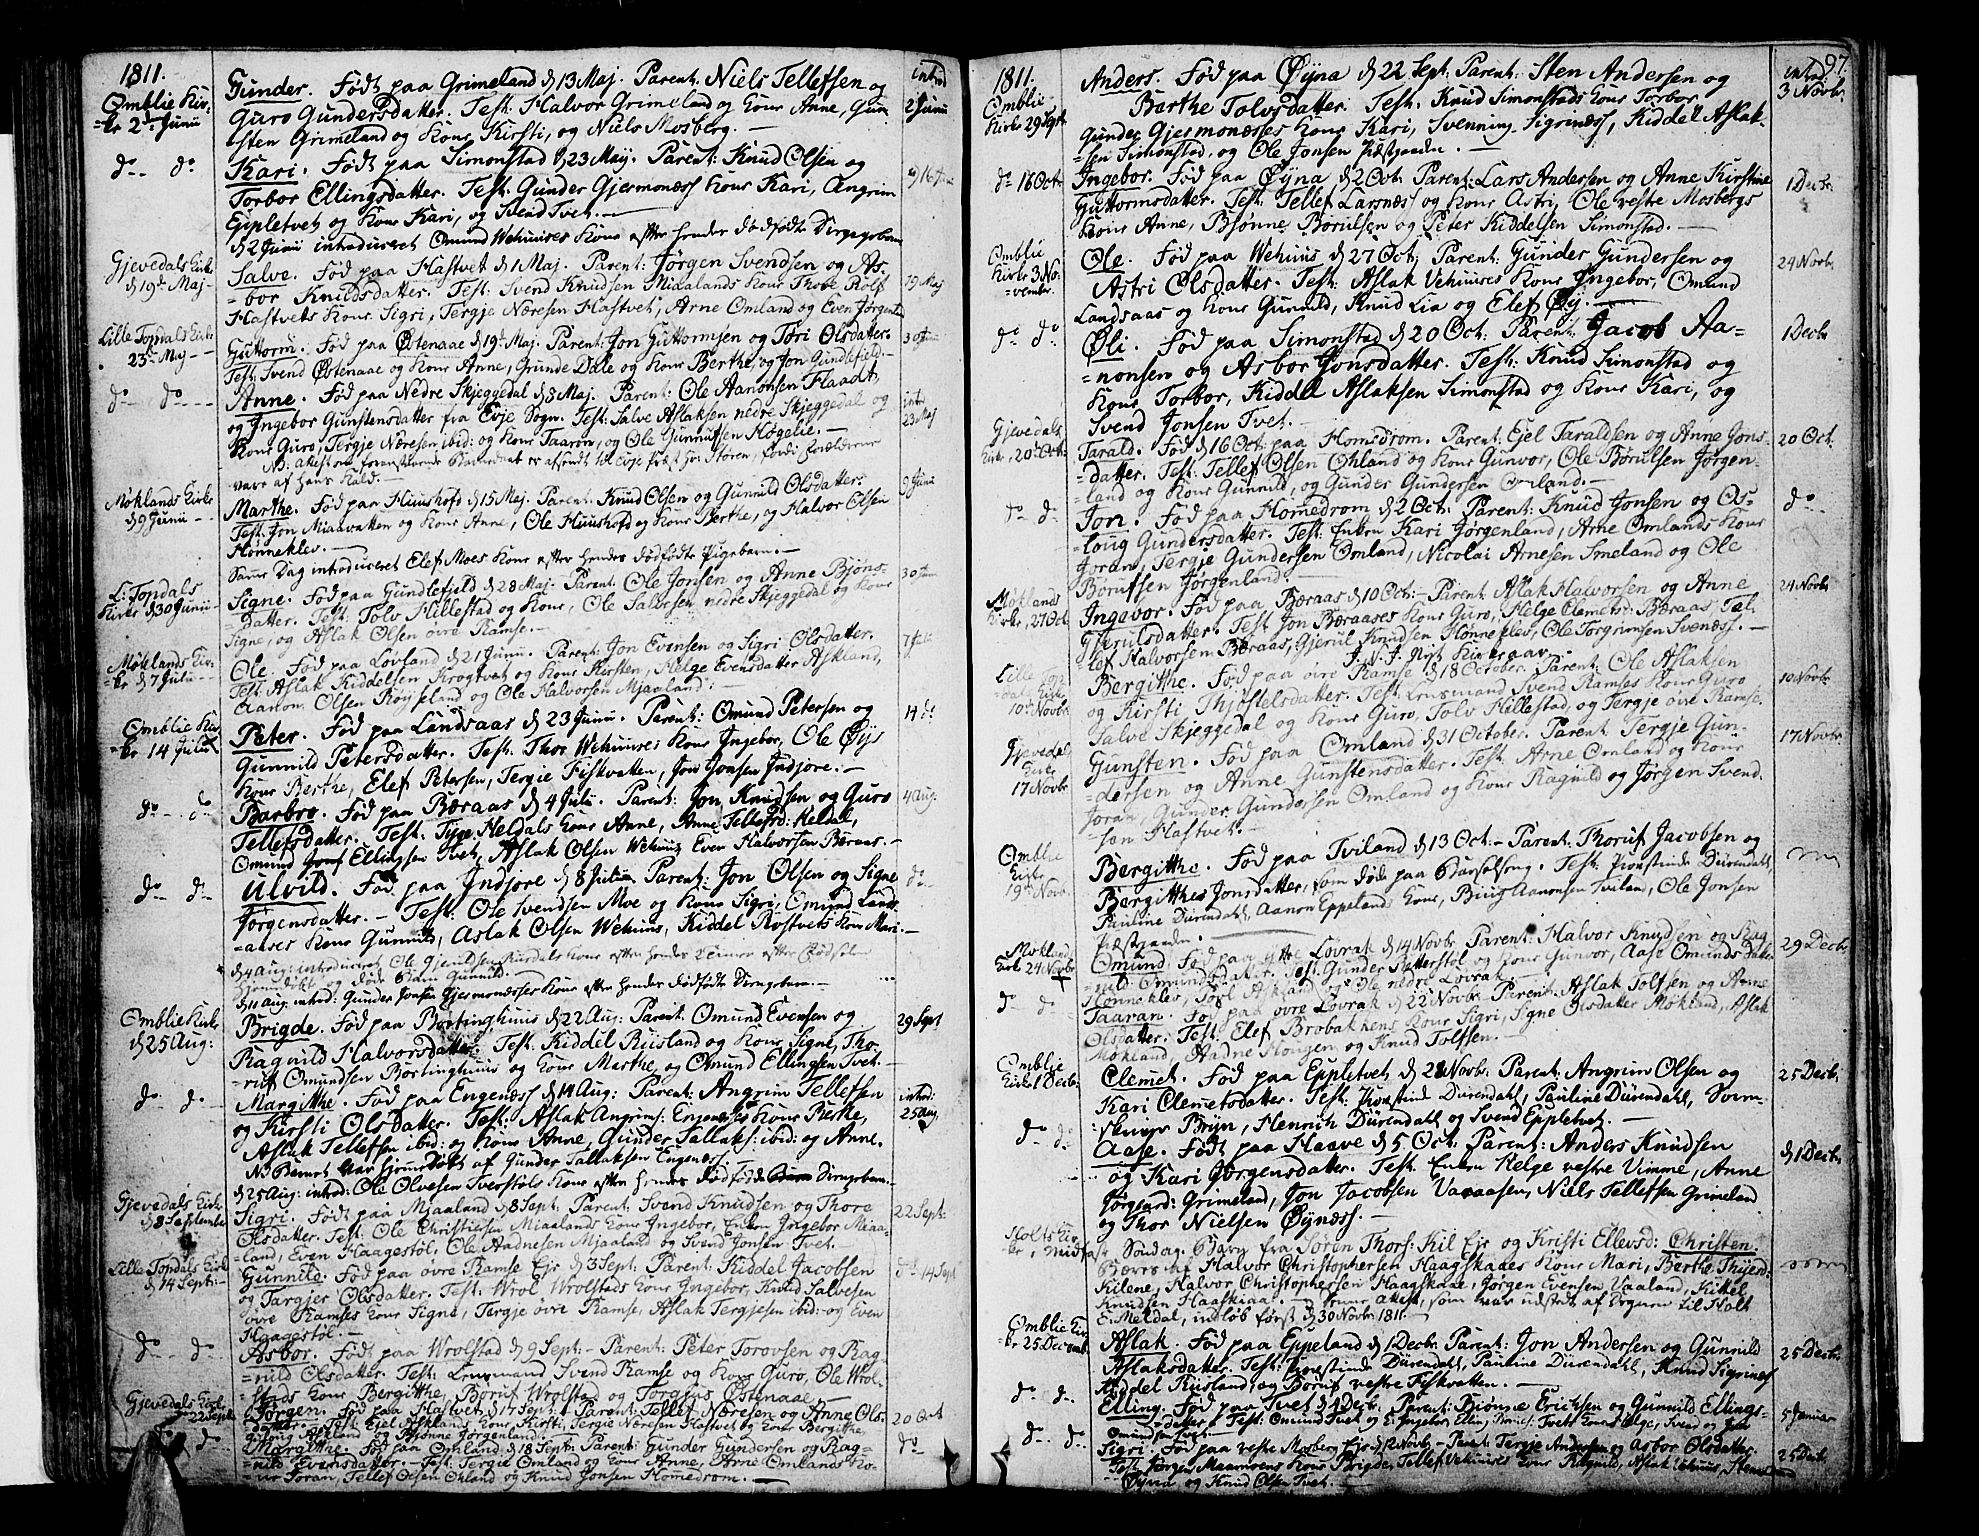 1811.
Omblie Kir-
ke 2den Junii
Gunder. Født paa Grimeland d 13 Maj. Parent: Niels Tellefsen og
Guro Gundersdatter. Test: Halvor Grimeland og Kone Anne, Gun-
sten Grimeland og Kone Kirsti, og Niels Mosberg.
introd
2 Junii
do do
Kari. Født paa Simonstad d 23 Maij. Parent: Knud Olsen og
Torbor Ellingsdatter. Test: Gunder Gjermonæs Kone Kari, Angrim
Eppletvet og Kone Kari, og Svend Tvet.
d 2 Junii introduceret Omund Wehuuses Kone efter hendes dødfødte Drengebarn
Gjevedals Kirke
d 19de Maj
Salve. Fød paa Hastvet d 1 Maj. Parent: Jørgen Svendsen og As-
bor Knudsdatter. Test: Svend Knudsen Miaalands Kone Thore, Rolf
Hastvets Kone Sigri, Tergje Næresen Hastvet, Arne Omland og Even Jørgenl
19 Maj
Lille Topdals Kirke
23de Maj
Guttorm. Fød paa Østenaae d 19de Maj. Parent: Jon Guttormsen og Tori Olsdatter.
Test: Svend Østenaae og Kone Anne, Grunde Dale og Kone Berthe, og Jon Gundlefield.
30 Junii
do do
Anne. Fød paa Nedre Skjeggedal d 8 Maj. Parent: Ole Aanonsen Flaadt,
og Ingebor Gunstensdatter fra Evje Sogn. Test: Salve Aslaksen nedre Skjeggedal og
Kone Guro, Tergje Næresen ibid: og Kone Taaran, og Ole Gunnufsen Høgelie.
intr
23 Maj
vare af hans Kald.
Møklands Kirke
d 9 Junii
Marthe. Fød paa Huushoft d 15 Maj. Parent: Knud Olsen og Gunnild Olsdatter.
Test: Jon Miaavatten og Kone Anne, Ole Huushoft og Kone Berthe, og Halvor Olsen
Hønneklev.
9 Junii
Samme Dag introduceret Elef Moes Kone efter hendes dødfødte Pigebarn.
L: Topdals
Kirke d 30 Junii
Signe. Fød paa Gundlefjeld d 28 Maj. Parent: Ole Jonsen og Anne Bjøns-
datter. Test: Tolv Hillestad og Kone, Ole Salvesen nedre Skjeggedal og Kone
Signe, og Aslak Olsen øvre Ramse.
30 Junii
Møklands Kir-
ke d 7 Julii
Ole. Fød paa Løvland d 21 Junii. Parent: Jon Evensen og Sigri Olsdatter.
Test: Aslak Kiddelsen Krogtvet og Kone Kirsten, Helge Evensdatter Askland,
Aanon Olsen Røyseland og Ole Halvorsen Mjaaland.
7 Julii
Omblie Kir-
ke 14 Julii
Peter. Fød paa Landsaas d 23 Junii. Parent: Omund Petersen og
Gunnild Petersdatter. Test: Thor Wehuuses Kone Ingebor, Ole Øys
Kone Berthe, Elef Petersen, Tergie Fiskvatten, Jon Jonsen Indjore.
14 do
do do
Barbro. Fød paa Bæraas d 4 Julii. Parent: Jon Knudsen og Guro
Tellefsdatter. Test: Tyge Heldals Kone Anne, Anne Tellefsd: Heldal,
Omund Ellingsen Tvet, Aslak Olsen Wehuus, Even Halvorsen Bæraas.
4 Aug:
do do
Ulvild. Fød paa Indjore d 8 Julii. Parent: Jon Olsen og Signe
Jørgensdatter. Test: Ole Svendsen Moe og Kone Sigri, Omund Lands-
aases Kone Gunnild, Aslak Olsen Wehuus, Kiddel Rostvets Kone Mari.
do
hjemdøbt og døde Barn Gunnild.
d 11 Aug: introd: Gunder Jonsen Gjermonæsses Kone efter hendes dødfødte Drengebarn.
Omblie Kirke
d 25 Aug:
Brigde. Fød paa Børtinghuus d 22 Aug: Parent: Omund Evensen og
Ragnild Halvorsdatter. Test: Kiddel Riisland og Kone Signe, Tho-
ruf Omundsen Børtinghuus og Kone Marthe, og Omund Ellingsen Tvet.
29 Sept
do do
Margithe. Fød paa Engenæss d 14 Aug: Parent: Angrim Tellefsen
og Kirsti Olsdatter. Test: Aslak Angrims: Engenæsses Kone Berthe,
Aslak Tellefsen ibid: og Kone Anne, Gunder Tallaks: ibid: og Anne.
NB Barnet var hjemdøbt af Gunder Tallaksen Engenæss.
introd:
25 Aug
d 25 Aug: introd: Ole Olvesen Tverstøls Kone efter hendes dødfødde Drengebarn.
Gjevedals Kirke
d 8 September
Sigri. Født paa Mjaaland d 8 Sept: Parent: Svend Knudsen og Thore
Olsdatter. Test: Ole Christiesen Miaalands Kone Ingebor, Enken Ingebor Miaa-
land, Even Haagestøl, Ole Aadnesen Mjaaland og Svend Jonsen Tvet.
22 Sept:
Lille Topdals Kirke
d 14 Sept:
Gunnild. Fød paa øvre Ramse Eje d 3 Sept: Parent: Kiddel Jacobsen
og Targjer Olsdatter. Test: Wrol Wrolstads Kone Ingebor, Knud Salvesen
øvre Ramses Kone Signe, Tergje øvre Ramse, Aslak Tergjesen ibid: og Even
Haagestøl.
do 14 Sept
do do
Asbor. Født paa Wrolstad d 9 Sept: Parent: Peter Torovsen og Rag-
nild Olsdatter. Test: Lensmand Svend Ramse og Kone Guro, Ole Wrol-
stads Kone Bergithe, Børuf Wrolstad og Torgjus Østenaae.
Gjevedals Kirke
22 Sept:
Jørgen. Fød paa Hastvet d 17 Sept: Parent: Tellef Næresen og Anne Ols-
datter. Test: Ejel Asklands Kone Kirsti, Tergie Næresen Hastvet og Kone Bergithe,
Askland og Bjønne Jørgenland.
20 Oct
do do
Margithe. Fød paa Omland d 18 Sept: Parent: Gunder Gundersen og Rag-
nild Evensdatter. Test: Tergie Omland og Kone Anne, Arne Omlands Ko-
ne Joran, Tellef Olsen Ohland og Knud Jonsen Homedrom.
do
97
1811.
Omblie
Kirke 29 Sept:
Anders. Fød paa Øyna d 22 Sept: Parent: Sten Andersen og
Barthe Tolvsdatter. Test: Knud Simonstads Kone Torbor
Gunder Gjermonæsses Kone Kari, Svenning Sigrinæss, Kiddel Aslak-
sen Simonstad, og Ole Jonsen Præstgaarden.
introd:
3 Novbr.
do 16 Oct:
Ingebor. Fød paa Øyna d 2 Oct: Parent: Lars Andersen og Anne Kirstine
Guttormsdatter. Test: Tellef Larsnæs og Kone Astri, Ole vestre Mosbergs
Kone Anne, Bjønne Børulsen og Peter Kiddelsen Simonstad.
1 Decbr.
Omblie
Kirke 3 No-
vembr.
Ole. Fød paa Wehuus d 27 Oct: Parent: Gunder Gundersen og
Astri Olsdatter. Test: Aslak Vehuuses Kone Ingebor, Omund
Landsaas og Kone Gunnild, Knud Lia og Elef Øy.
24 Novbr.
do do
Øli. Fød paa Simonstad d 20 Oct. Parent: Jacob Aa-
nonsen og Asbor Jonsdatter. Test: Knud Simonstad og
Kone Torbor, Kiddel Aslaksen Simonstad og Kone Kari, og
Svend Jonsen Tvet.
1 Decbr
Gjevedals
Kirke, 20de Oct:
Tarald. Fød d 16 Oct: paa Homsdrom. Parent: Ejel Taraldsen og Anne Jons-
datter. Test: Tellef Olsen Ohland og Kone Gunvor, Ole Børulsen Jørgen-
land og Kone Gunnild, og Gunder Gundersen Omland.
20 Oct:
do do
Jon. Fød paa Homedrom d 2 Oct: Parent: Knud Jonsen og Os-
loug Gundersdatter. Test: Enken Kari Jørgenland, Arne Omlands Kone
Joran, Tergje Gundersen Omland, Nicolai Arnesen Smeland og Ole
Børufsen Jørgenland.
do
Møklands
Kirke, 27 Oct:
Ingebor. Fød paa Bæraas d 10 Oct: Parent: Aslak Halvorsen og Anne
Gjerulsdatter. Test: Jon Bæraases Kone Guro, Helge Clemets: Bæraas, Tel-
lef Halvorsen Bæraas, Gjerul Knudsen Hønneklev, Ole Torgrimsen Svenæs.
24 Novbr
I. N. J. Nyt Kirkeaar.
Lille Top-
dals Kirke
10de Novbr
Bergithe. Fød paa øvre Ramse d 18 October. Parent: Ole Aslaksen
og Kirsti Thjøstelsdatter. Test: Lensmand Svend Ramses Kone Guro
Salve Skjeggedal og Kone Guro, Tolv Hillestad, og Tergje øvre Ramse.
10 Novbr
Gjevedals
Kirke
17 Novbr
Gunsten. Fød paa Omland d 31 October. Parent: Tergje Gun-
dersen og Anne Gunstensdatter. Test: Arne Omland og Kone
Joran, Gunder Gundersen Omland og Kone Ragnild og Jørgen Svend-
sen Hastvet.
17 Novbr.
Omblie
Kirke
19de Novbr.
Bergithe. Fød paa Tviland d 13 Oct: Parent: Thoruf Jacobsen og
Bergithes Jonsdatter, som døde paa Barselseng. Test: Provstinde Dürendahl,
Pauline Dürendahl, Aanon Eppelands Kone, Biug Aanonsen Tvilan, Ole Jonsen
Præstgaarden.
Mokland
Kirke 24 Novbr
Omund. Fød paa ytre Lovrak d 14 Novbr. Parent: Halvor Knudsen og Rag-
nild Omundsdatter. Test: Gunder Retterstøl og Kone Gunvor, Aase Omunds Datter
Hønneklev, Torl Askland og Ole nedre Lovrak.
29 Decbr
do do
Taaran. Fød paa øvre Lovrak d 22 Novbr. Parent: Aslak Tolfsen og Anne
Olsdatter. Test: Elef Brobakkens Kone Sigri, Signe Olsdatter Møkland, Aslak
Møkland, Aadne Hougen og Knud Tolfsen.
Omblie
Kirke 1 Decbr:
Clemet. Fød paa Eppletvet d 28 Novbr. Parent: Angrim Olsen og
Kari Clemetsdatter. Test: Provstinde Dürendahl, Pauline Dürendahl, Svin-
Brün, Henrich Dürendahl og Svend Eppletvet.
25 Decbr.
do do
Aase. Født paa Haave d 5 Oct: Parent: Anders Knudsen
og Kari Jørgensdatter. Test: Enken Helge vestre Vimme, Anne
Jørgensd: Grimeland, Jon Jacobsen Vavaasen, Niels Tellefsen Grimeland
og Thor Nielsen Øynæs.
d 1 Decbr.
Holts Kir-
ke, Midfaste
Søndag. Barn fra Søren Thors: Kil Eje og Kristi Ellevsd: Christen.
Bæres af Halvor Christophersen Haagskaaes Kone Mari, Berthe Thjerd:
Kilene, Halvor Christophersen Haagskaae, Jørgen Evensen Vaaland, Kittel
Knudsen Haaskiaa. Denne Attest, som var udstedt af Degnen til Holt
E. Meldal, indløb først d 30 Novbr 1811.
Omblie Kir-
ke 25 Decemb.
Aslak. Fød paa Eppeland d 1 Decbr. Parent: Jon Andersen og Gunnild
Aslaksdatter. Test: Provstinde Dürendahl, Pauline Dürendahl, Knud Sigrinæs
Kiddel Riisland, og Børuf vestre Fiskvatten.
25 Decbr.
do do
Elling. Fød paa Tvet d 1 Decbr. Parent: Biønne Erichsen og Gunnild Ellings-
datter. Test: Omund Tvet og Ingebor Ellings:
Omundsen Tvet.
5 Januar
do do
Sigri. Fød paa vestre Mosberg Eje d 12 Novbr. Parent: Tergje Andersen og Asbor Olsdatter.
Test: Jørgen Maamoens Kone Brigde, Tellef Vehuuses Kone Ragnild, Aslak Vehuus, Sten
Øyna og Knud Olsen Tvet.
25 Decbr